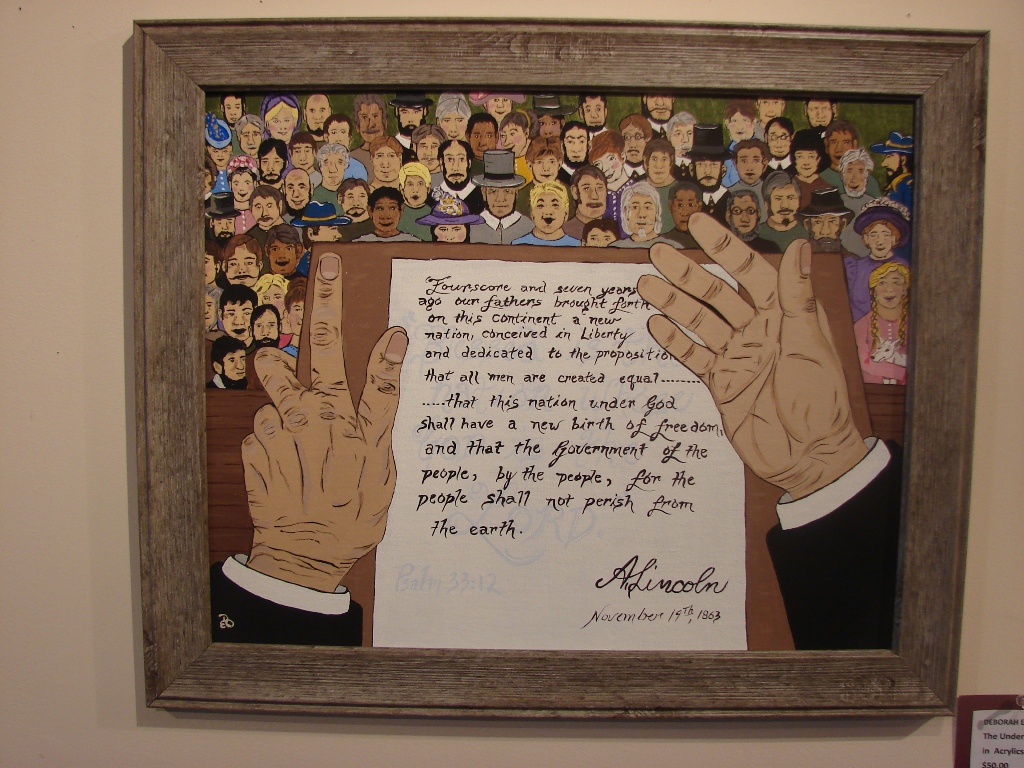 Fourscore and seven years
ago our fathers brought forth
on this continent a new
nation, conceived in Liberty
and dedicated to the proposition
that all men are created equal........
.....that this nation under God
shall have a new birth of freedom,
and that the Government of the
people, by the people, for the
people shall not perish from
the earth.
Psalm 33:12
A. Lincoln
November 19th, 1863
DEBORAH E
The Under
in Acrylics
$50.00